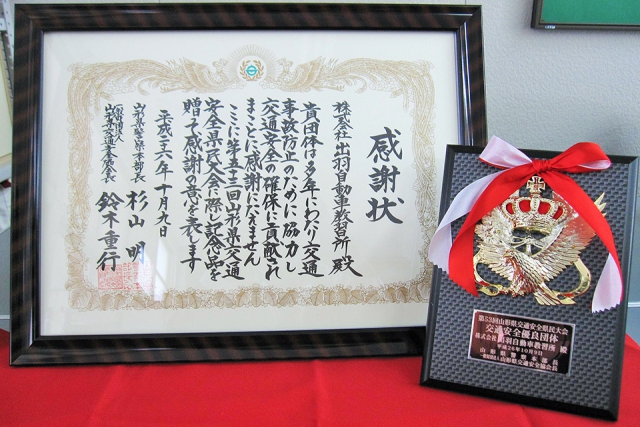 感謝状
株式会社 出羽自動車教習所 殿
貴団体は多年にわたり交通
事故防止のために協力し
交通安全の確保に貢献され
まことに感謝にたえません
ここに第五十三回山形県交通
安全県民大会に際し記念品を
贈って感謝の意を表します
平成二十六年十月九日
山形県警察本部長 杉山 明
一般財団法人
山形県交通安全協会長 鈴木重行
第53回山形県交通安全県民大会
交通安全優良団体
株式会社出羽自動車教習所 殿
平成26年10月9日
山形県警察本部長
一般財団法人山形県交通安全協会長